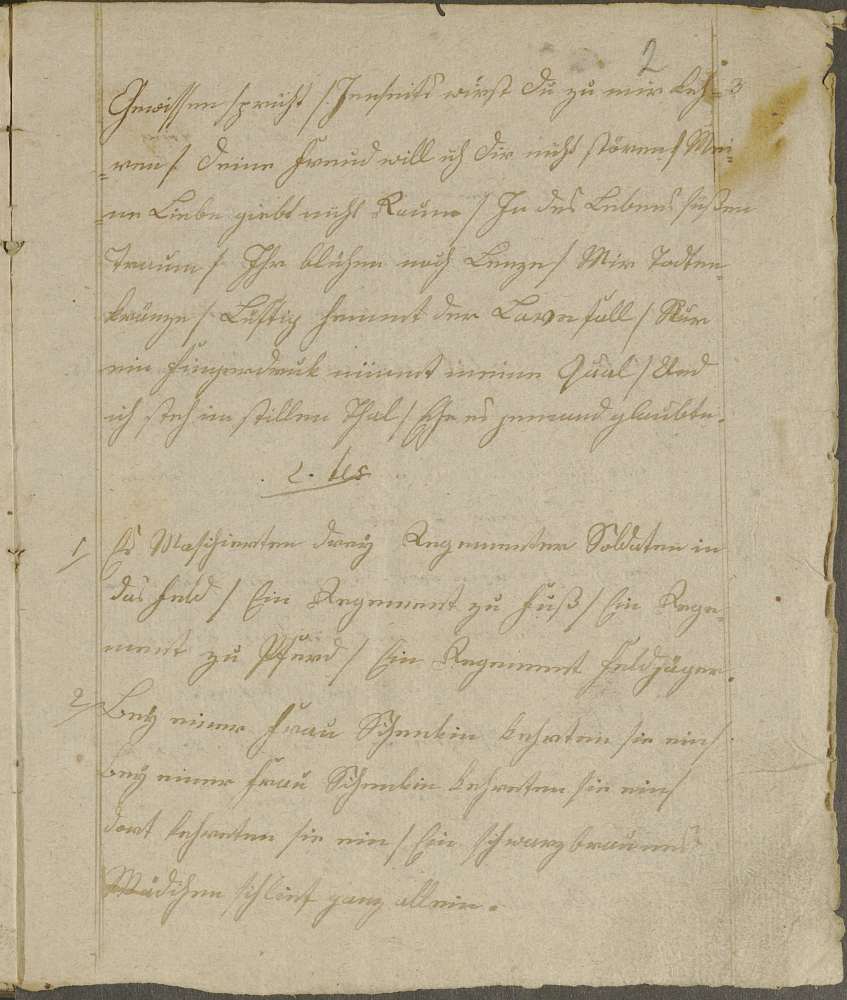 2
Gewissen spricht /: Jenseits wirst du zu mir keh= 3
=ren /: Deine Freud will ich dir nicht stören / Mei=
=ne Liebe giebt nicht Raum / In des Lebens süßen
Traum / Ihr blühen noch Lenze / Mir Todten=
kränze / Lustig hemmt der Lawe fall / Nur
ein Fingerdruk nimmt meine Quäal / Und
ich steh im stillen Thal / Ehe es jemand glaubte.
2. Us
1/ Es Maschierten drey Regementer Soldaten in
das Feld / Ein Regement zu Fuß / Ein Rege=
ment zu Pferd / Ein Regement Feldjäger.
2/ Bey einer Frau Schenkin kehrten sie ein /
bey einer Frau Schenkin kehreten sie ein /
dort kehreten sie ein / Ein schwarzbraunes
Mädchen schlief ganz allein.